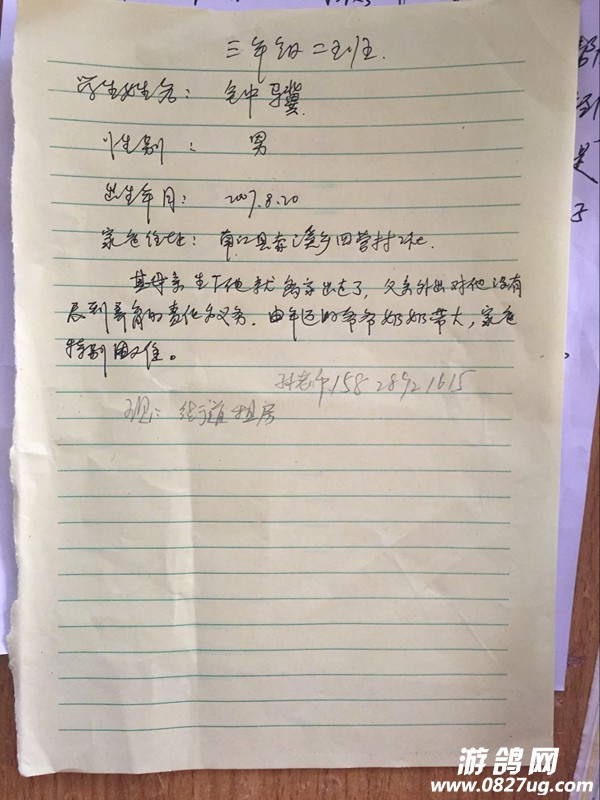 三年级二班.
学生姓名: 骥
性别: 男
出生年月: 2007.8.20
家庭住址: 南江县 溪乡四营村2社.
其母亲生下他就离家出走了, 父亲外出对他没有
尽到养育的责任和义务. 由年迈的爷爷奶奶带大, 家庭
特别困难。
孙老师 15828921615
现: 街道租房
游鸽网
www.0827ug.com
是
子